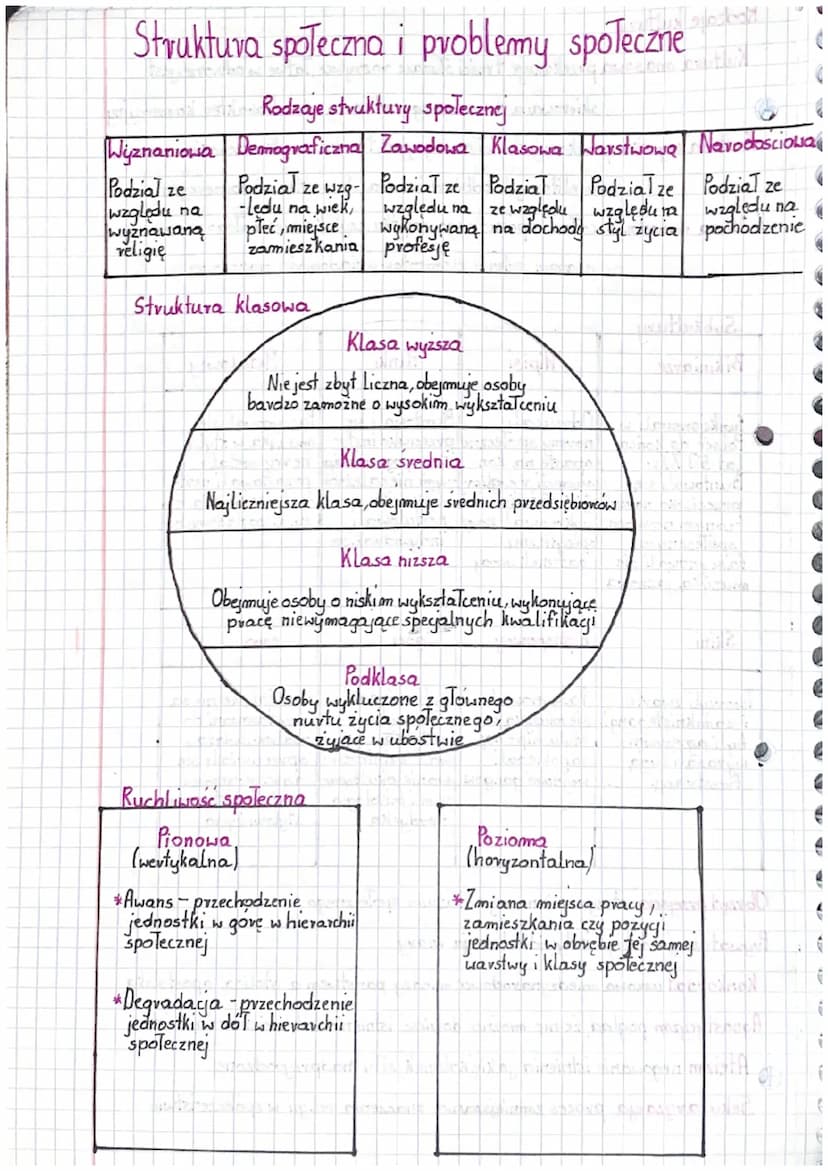 Struktura społeczna i problemy społeczne
Rodzaje struktury społecznej
Wyznaniowa
Podział ze
względu na
wyznawaną
religię
Demograficzna
Podział ze wzg-
-lędu na wiek,
płeć, miejsce
zamieszkania
Zawodowa
Podział ze
względu na
wykonywaną
profesję
Klasowa
Podział
ze względu
na dochody
Warstwowa
Podział ze
względu na
styl życia
Narodościowa
Podział ze
względu na
pochodzenie
Struktura klasowa
Klasa wyższa
Nie jest zbyt liczna, obejmuje osoby
bardzo zamożne o wysokim wykształceniu
Klasa średnia
Najliczniejsza klasa, obejmuje średnich przedsiębiorców
Klasa niższa
Obejmuje osoby o niskim wykształceniu, wykonujące
pracę niewymagające specjalnych kwalifikacji
Podklasa
Osoby wykluczone z głównego
nurtu życia społecznego,
żyjące w ubóstwie
Ruchliwość społeczna
Pionowa
(wertykalna)
*Awans - przechodzenie
jednostki w górę w hierarchii
społecznej
*Degradacja - przechodzenie
jednostki w dół w hierarchii
społecznej
Pozioma
(horyzontalna)
*Zmiana miejsca pracy,
zamieszkania czy pozycji
jednostki w obrębie tej samej
warstwy i klasy społecznej